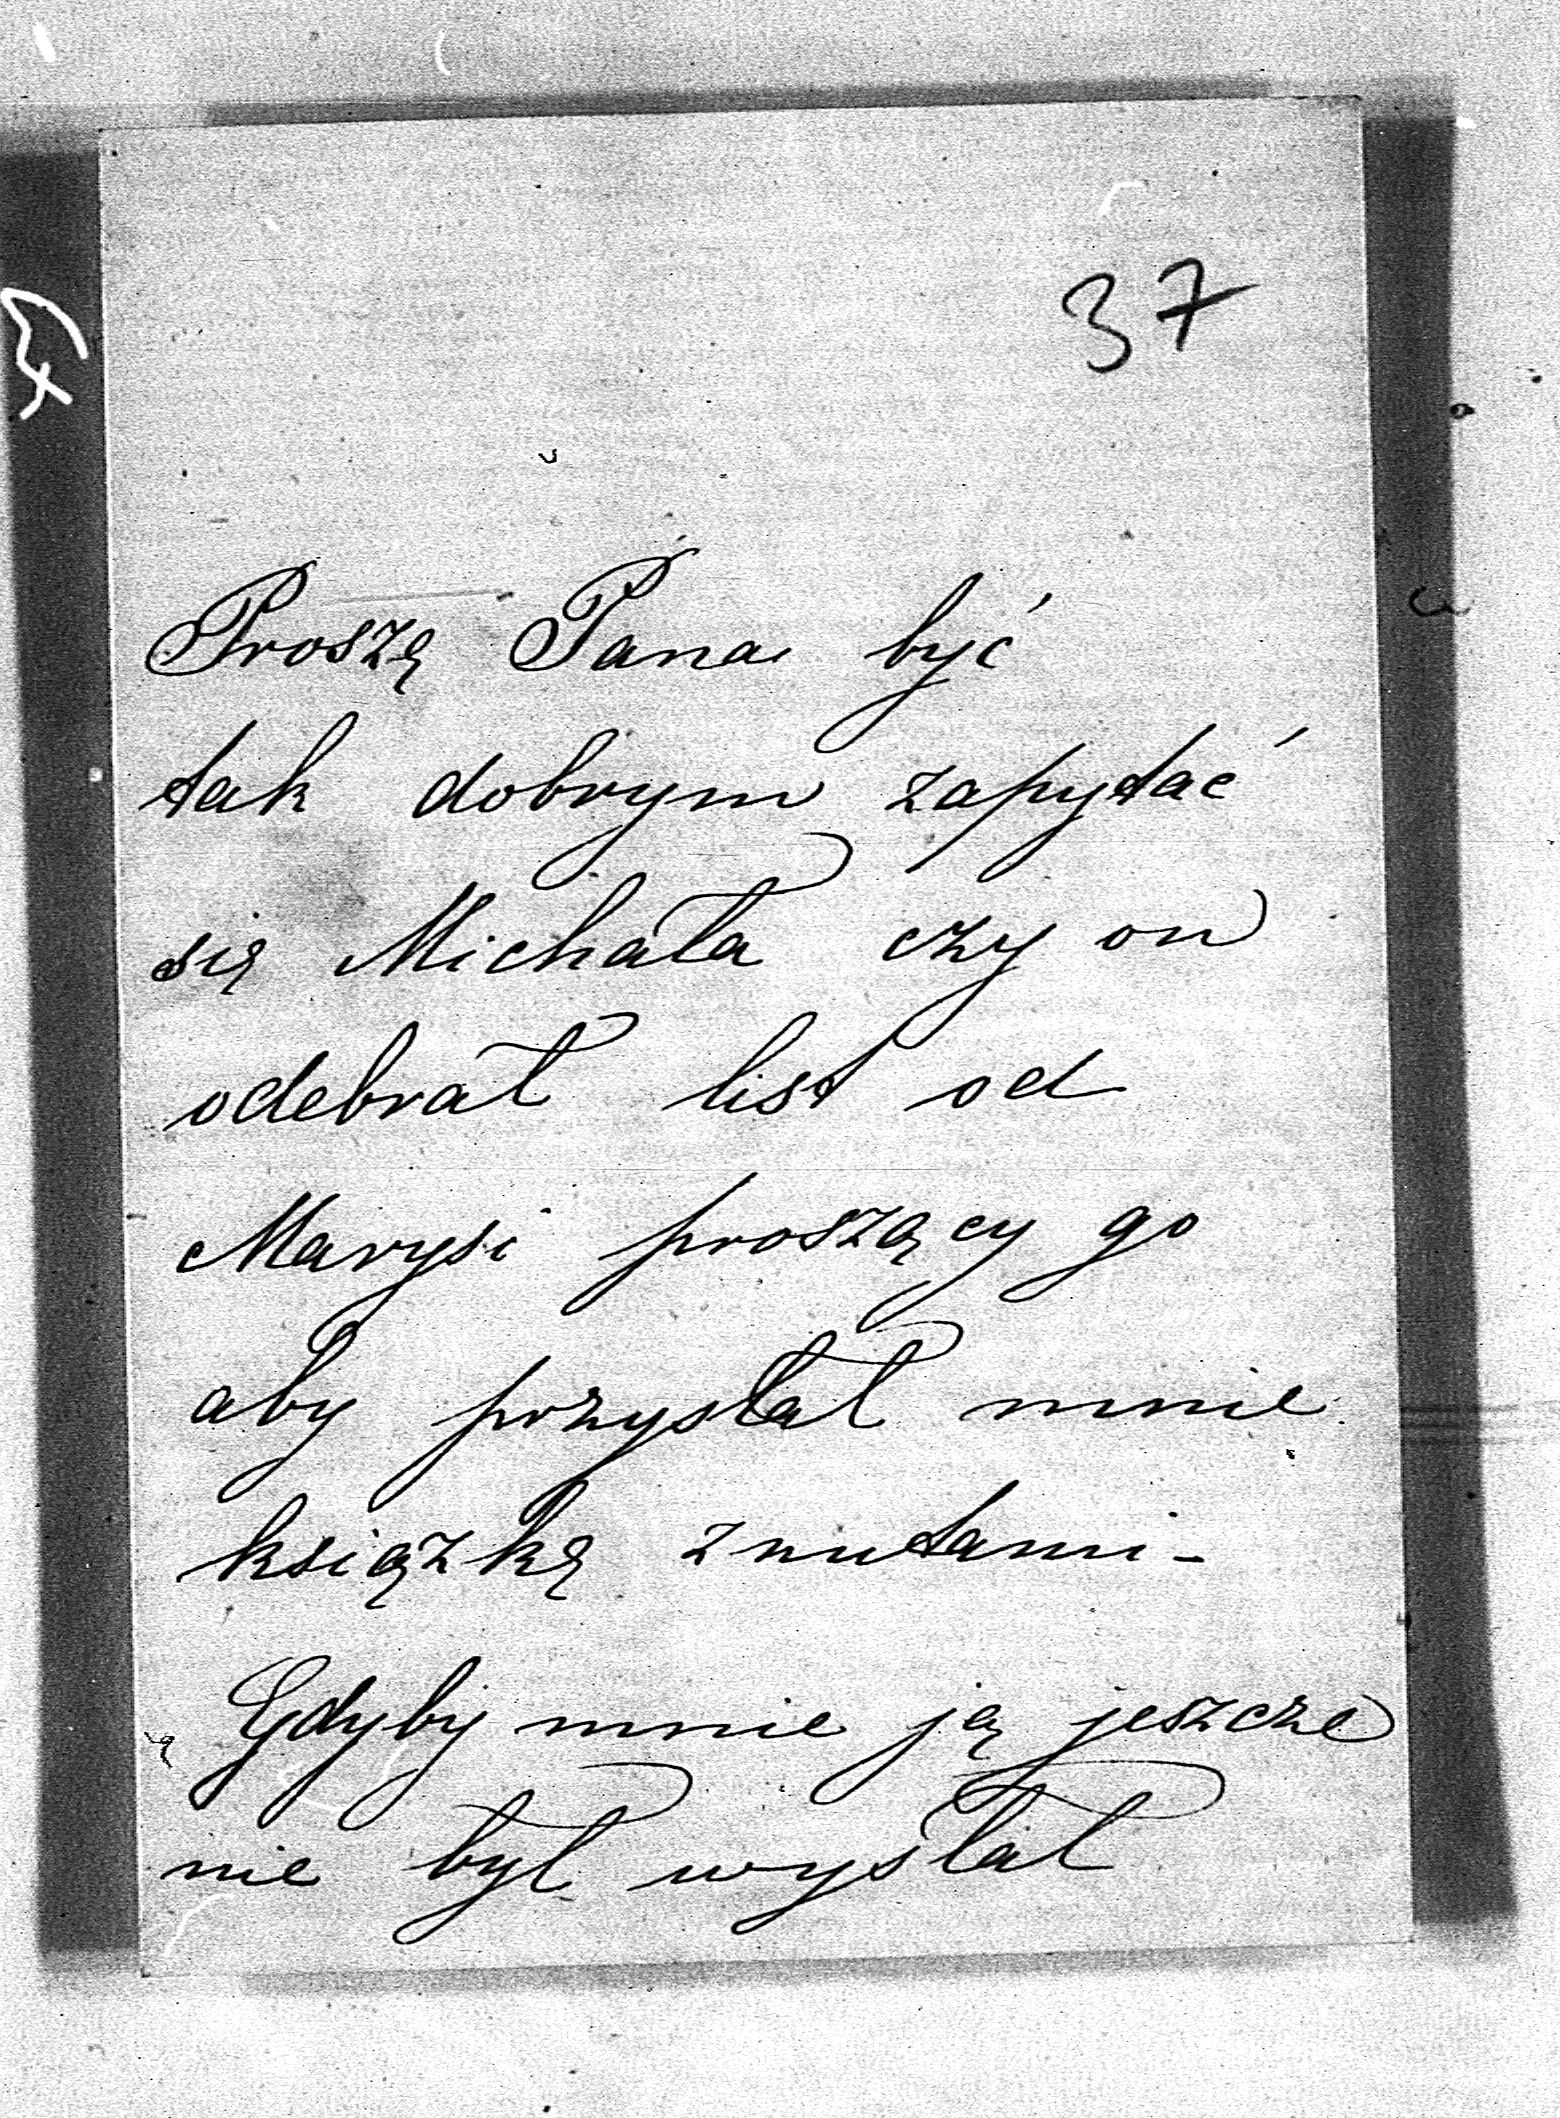 37
Proszę Pana być
tak dobrym zapytać
się Michała czy on
odebrał list od
Marysi proszący go
aby przysłał mnie
książkę z nutami -
Gdyby mnie ją jeszcze
nie był wysłał